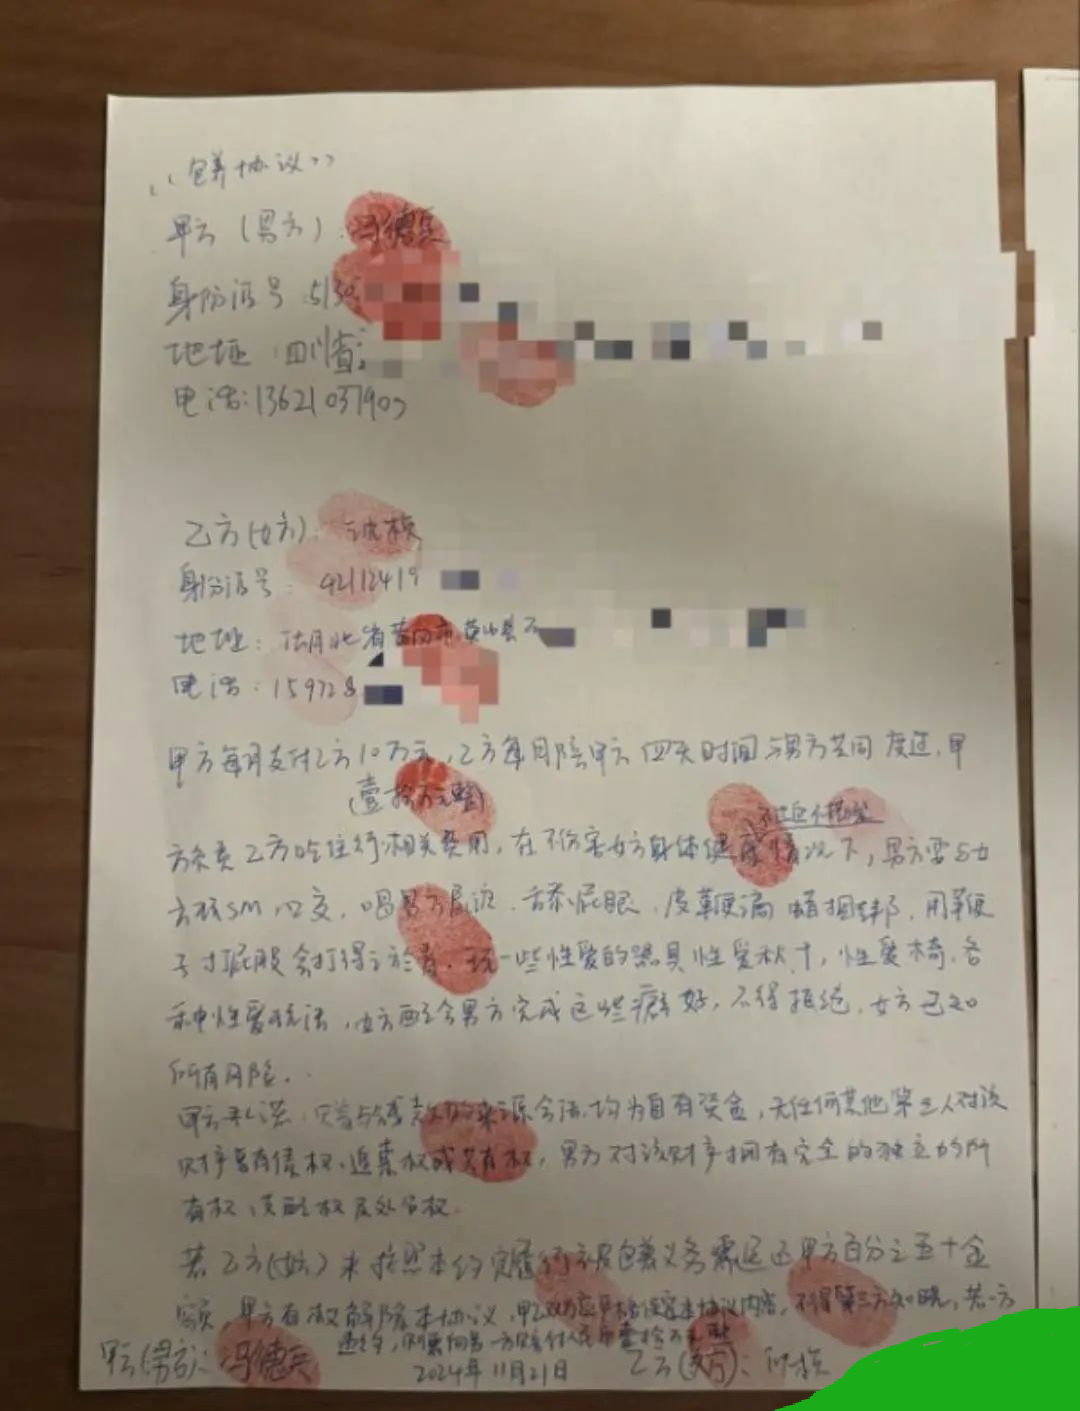 《包养协议》
甲方(男方):冯德兵
身份证号:5130
地址:四川省
电话:1362103790
乙方(女方):
身份证号:42112419
地址:湖北省黄冈市英山县
电话:159728
甲方每月支付乙方10万元,乙方每月陪甲方四天时间与男方共同度过,甲
(壹拾万元整)
方负责乙方吃住行相关费用,在不伤害女方身体健康情况下,男方需与女
方玩SM,口交,喝男方尿液,舔屁眼,皮鞭滴蜡捆绑,用鞭
子打屁股会打得,玩一些性爱的器具性爱秋千,性爱椅,各
种性爱玩法,女方配合男方完成这些癖好,不得拒绝,女方已知
所有风险.
甲方承诺,赠与钱款的来源合法,均为自有资金,无任何其他第三人对该
财产享有债权、追索权或共有权,男方对该财产拥有完全的独立的所
有权、支配权及处分权.
若乙方(女方)未按照本约实履行被包养义务需退还甲方百分之五十金
额,甲方有权解除本协议,甲乙双方应严格保密本协议内容,不得第三方知晓,若一方
违约,则需向另一方赔付人民币壹拾万元
甲方(男方):冯德兵
2024年11月21日
乙方(女方):